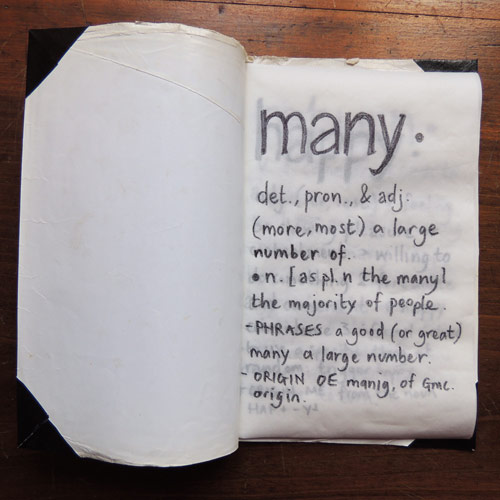 many.
det., pron., & adj.
(more, most) a large
number of.
• n. [as pl. n the many]
the majority of people.
-PHRASES a good (or great)
many a large number.
- ORIGIN OE manig, of Gmc.
origin.